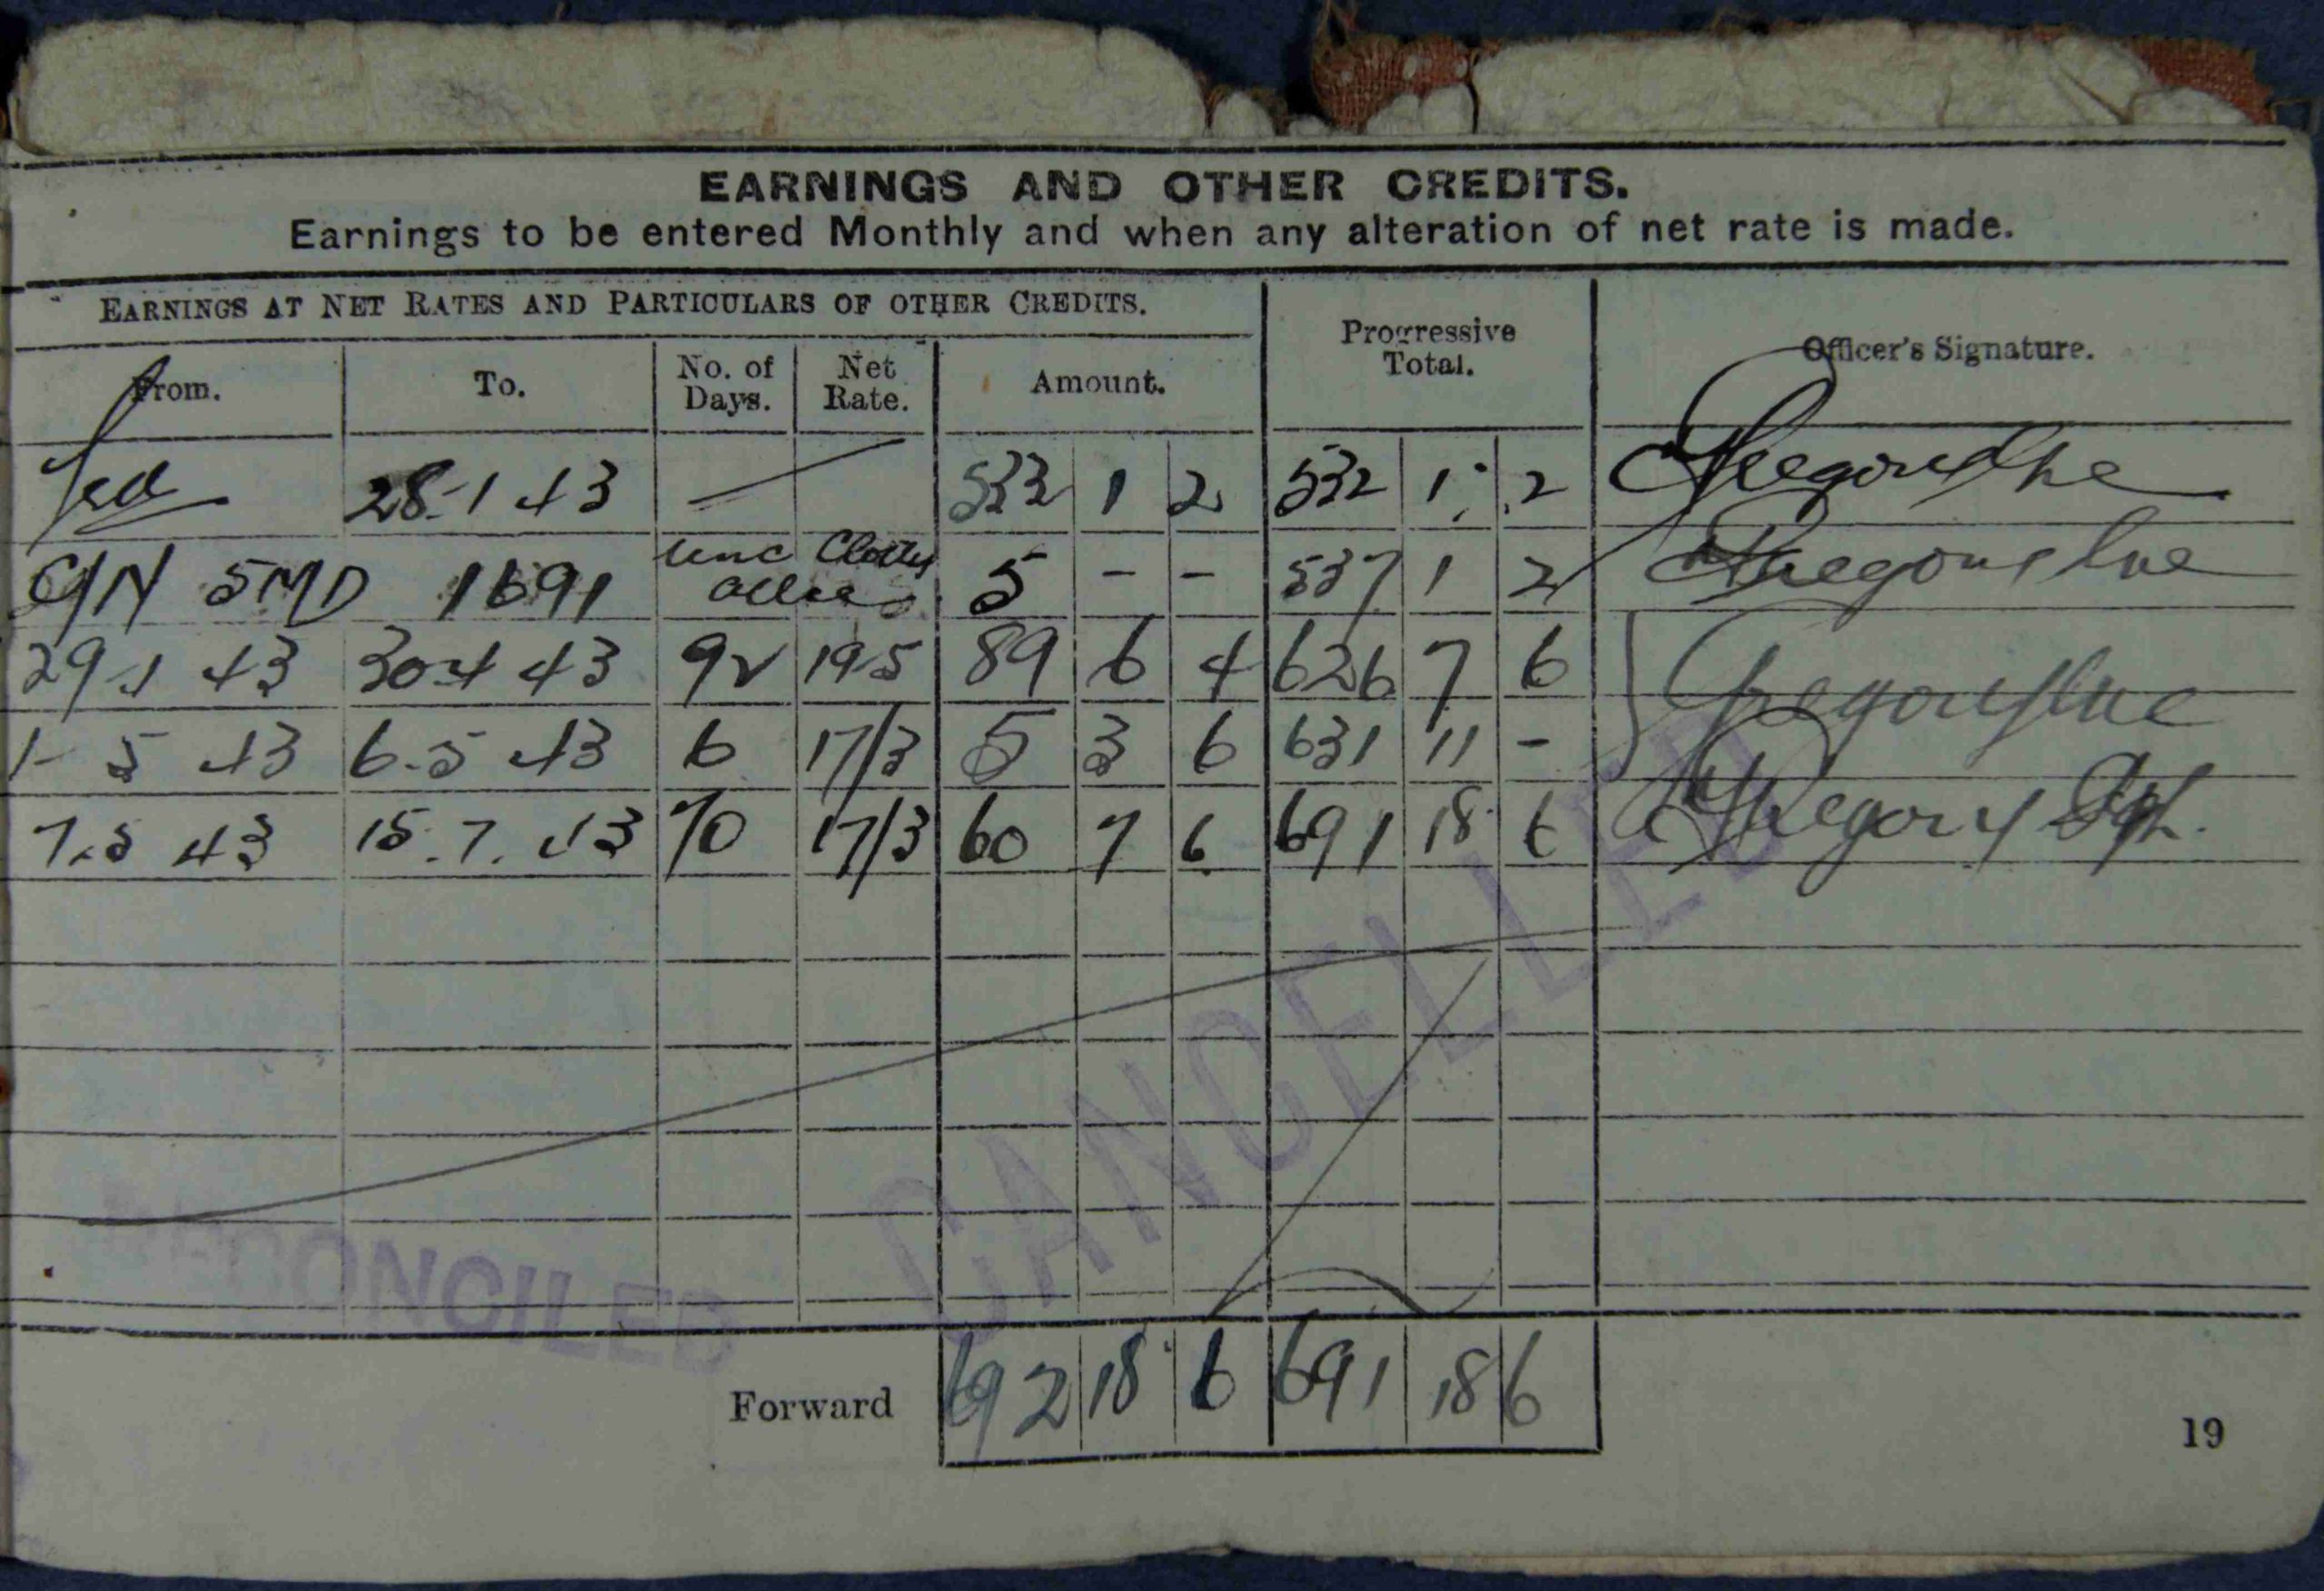 EARNINGS AND OTHER CREDITS.
Earnings to be entered Monthly and when any alteration of net rate is made.
EARNINGS AT NET RATES AND PARTICULARS OF OTHER CREDITS. Progressive Total. Officer's Signature.
From. To. No. of Days. Net Rate. Amount.
28-1 43 532 1 2 532 1 2
5MD 1691 5 - - 537 1 2
29-1 43 30-4 43 92 19-5 89 6 4 626 7 6
1-5 43 6-5 43 6 17/3 5 3 6 631 11 -
7.5 43 15.7.43 70 17/3 60 7 6 691 18 6 Gregory
CANCELLED
RECONCILED
Forward 692 18 6 691 18 6
19